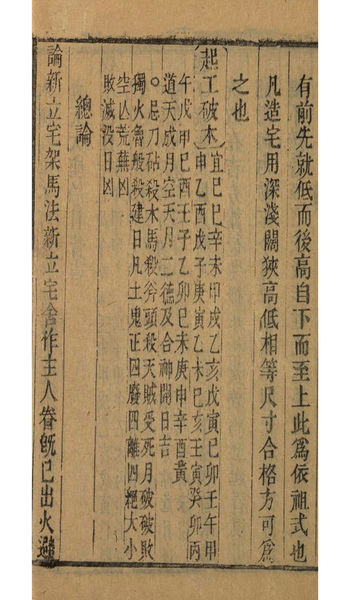 有前先就低而後高自下而至上此爲依祖式也
凡造宅用深淺闊狹高低相等尺寸合格方可爲
之也
起工破木宜己巳辛未甲戌乙亥戊寅己卯壬午甲
申乙酉戊子庚寅乙未己亥壬寅癸卯丙
午戊申己酉壬子乙卯己未庚申辛酉黃
道天成月空天月二德及合神開日吉
○忌刀砧殺木馬殺斧頭殺天賊受死月破破敗
獨火魯般殺建日凡土鬼正四廢四離四絕大小
空凶荒蕪凶
敗滅没日凶
總論
論新立宅架馬法新立宅舍作主人眷既已出火避